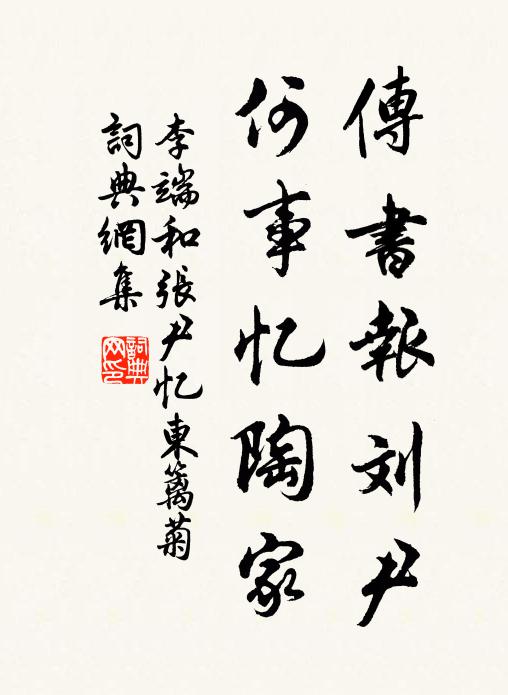 傳書報刘尹
何事忆陶家
李端和張尹忆東籬菊
詞典網集
詞典网印